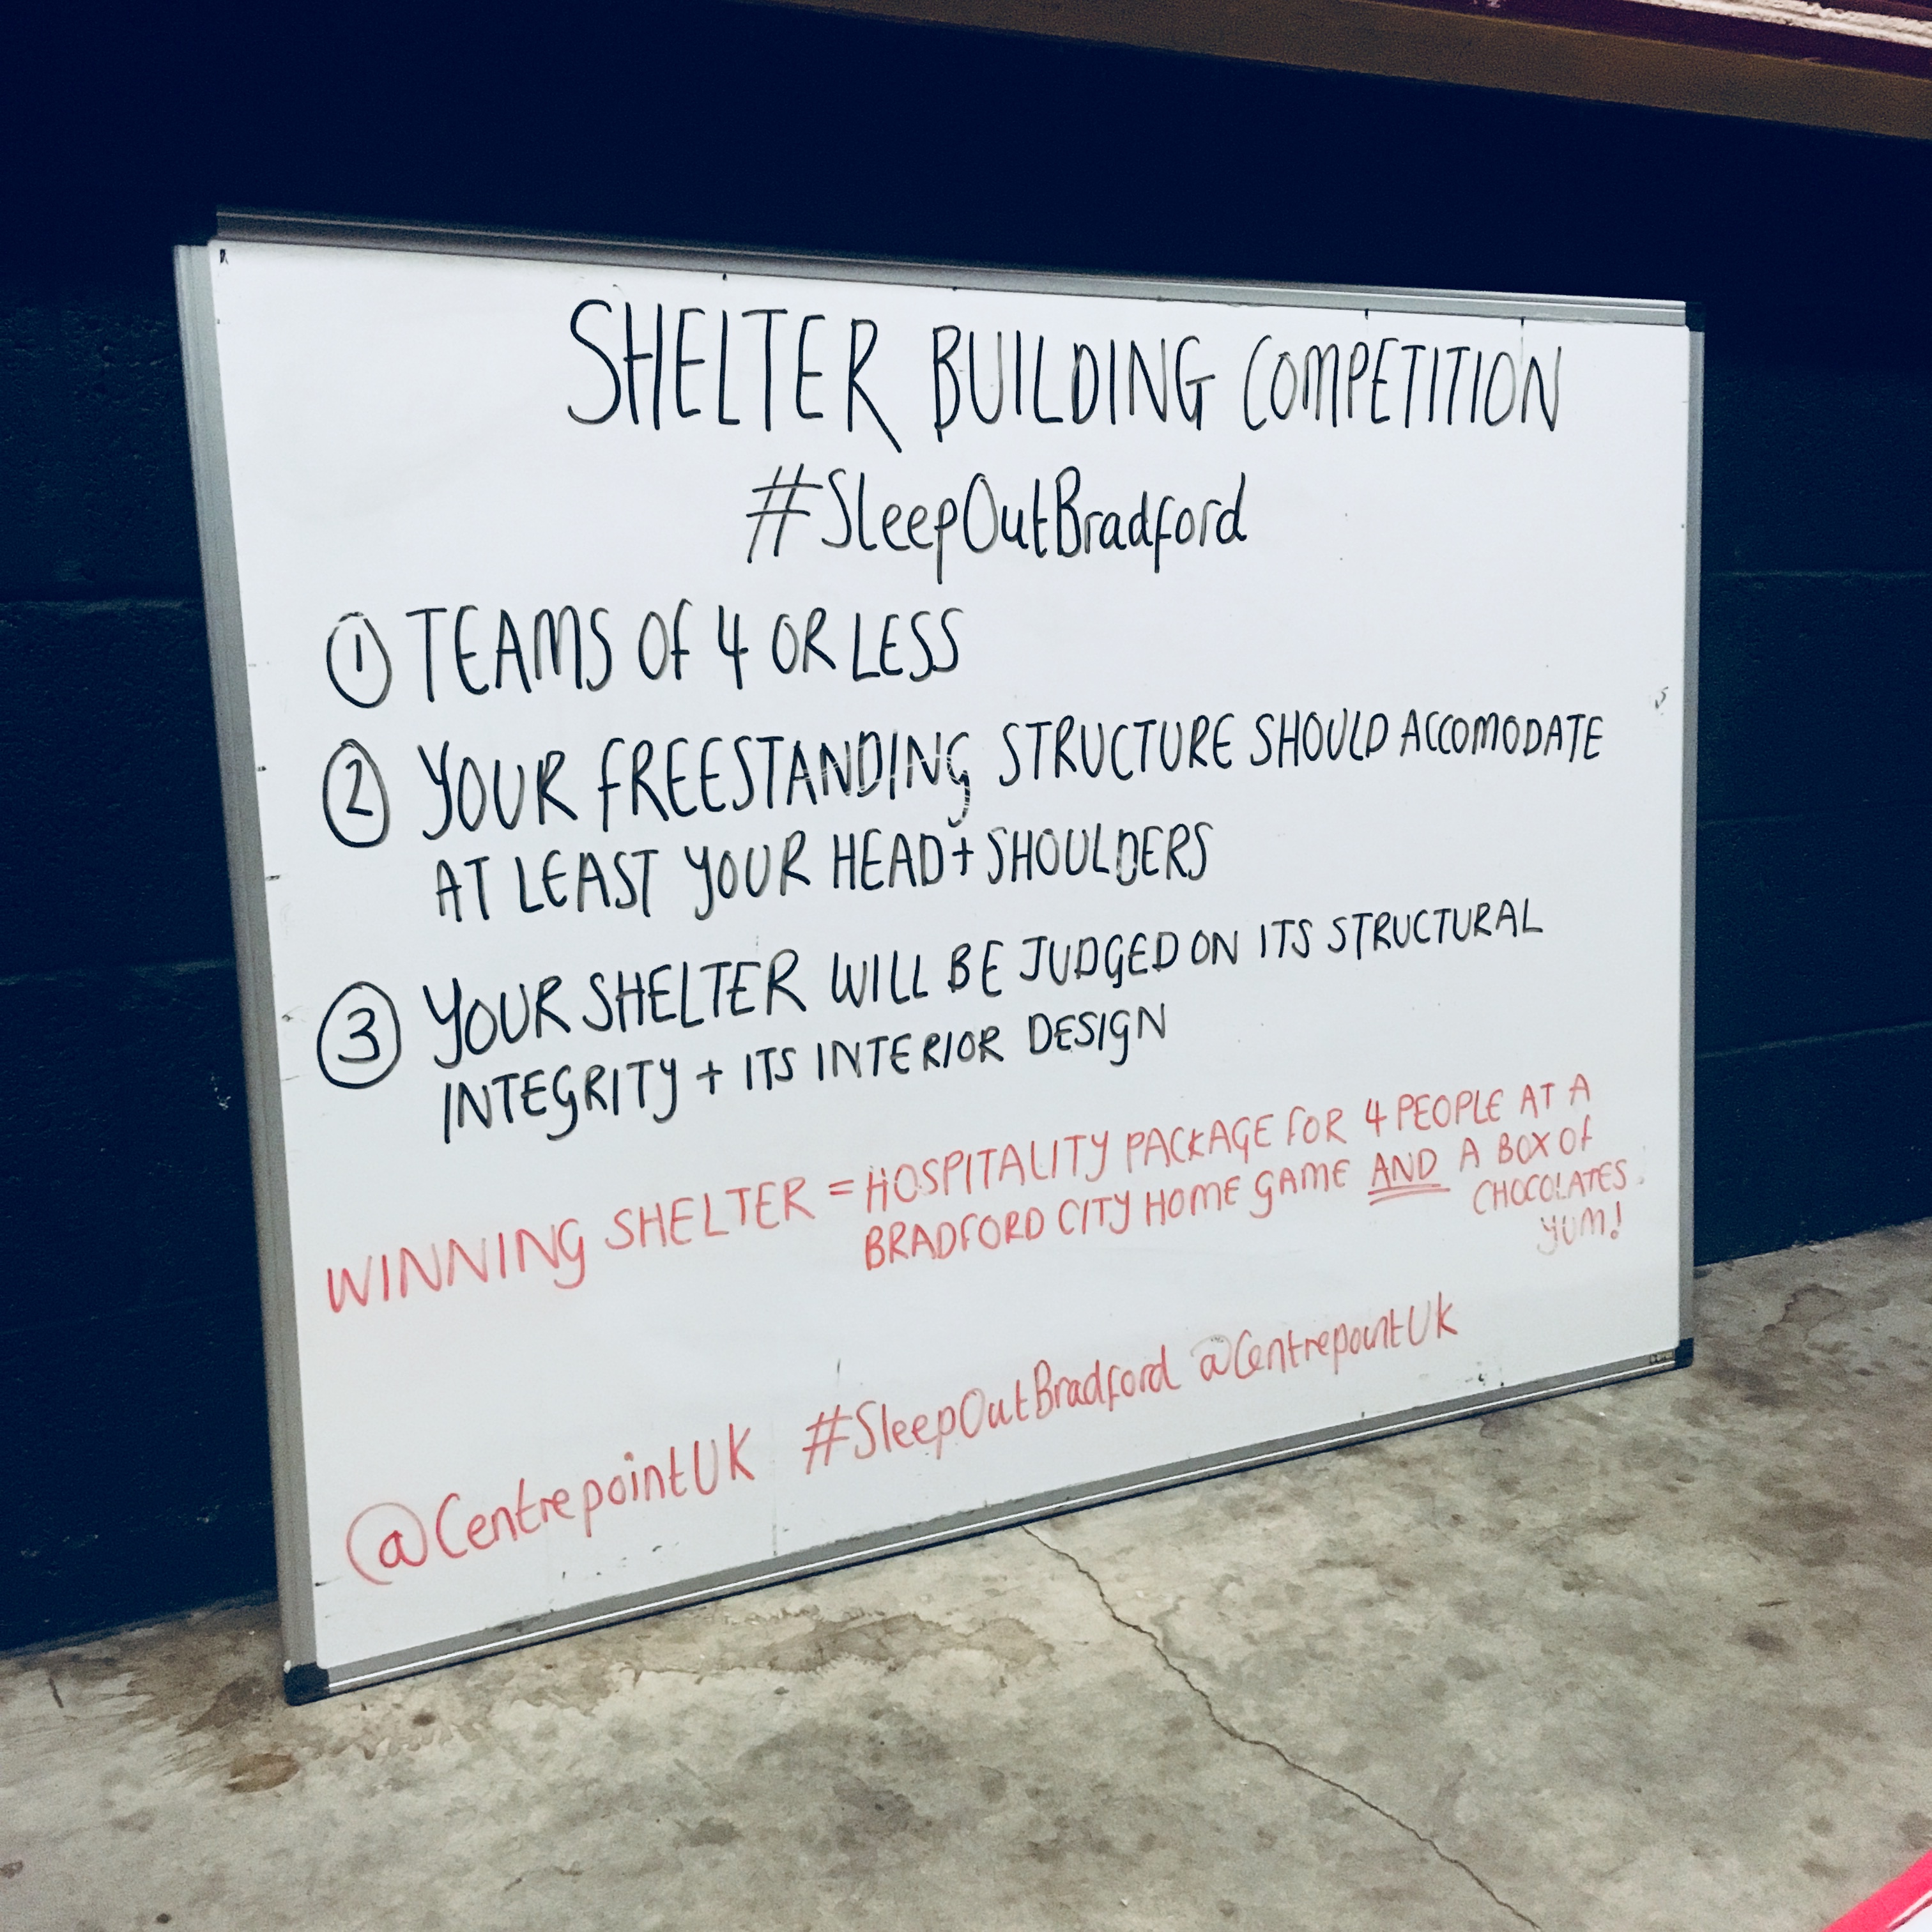 SHELTER BUILDING COMPETITION
#SleepOutBradford
① TEAMS OF 4 OR LESS
② YOUR FREESTANDING STRUCTURE SHOULD ACCOMODATE
AT LEAST YOUR HEAD + SHOULDERS
③ YOUR SHELTER WILL BE JUDGED ON ITS STRUCTURAL
INTEGRITY + ITS INTERIOR DESIGN
WINNING SHELTER = HOSPITALITY PACKAGE FOR 4 PEOPLE AT A
BRADFORD CITY HOME GAME AND A BOX OF
CHOCOLATES.
YUM!
@CentrepointUK #SleepOutBradford @CentrepointUK